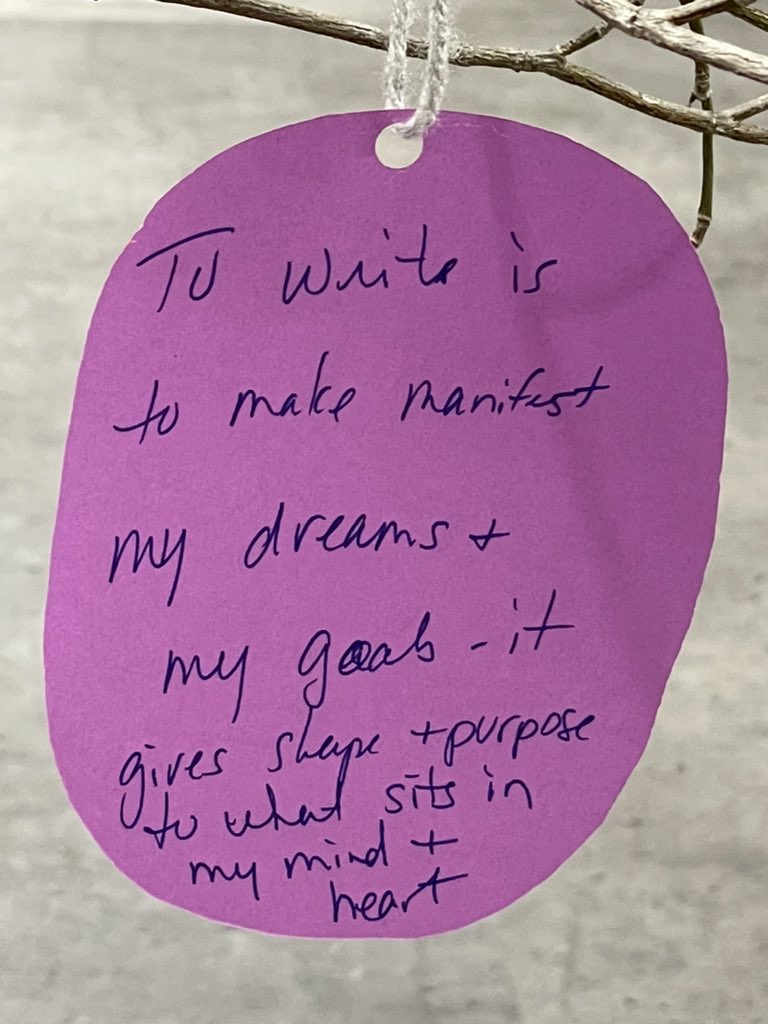 To write is
to make manifest
my dreams +
my goals - it
gives shape + purpose
to what sits in
my mind +
heart